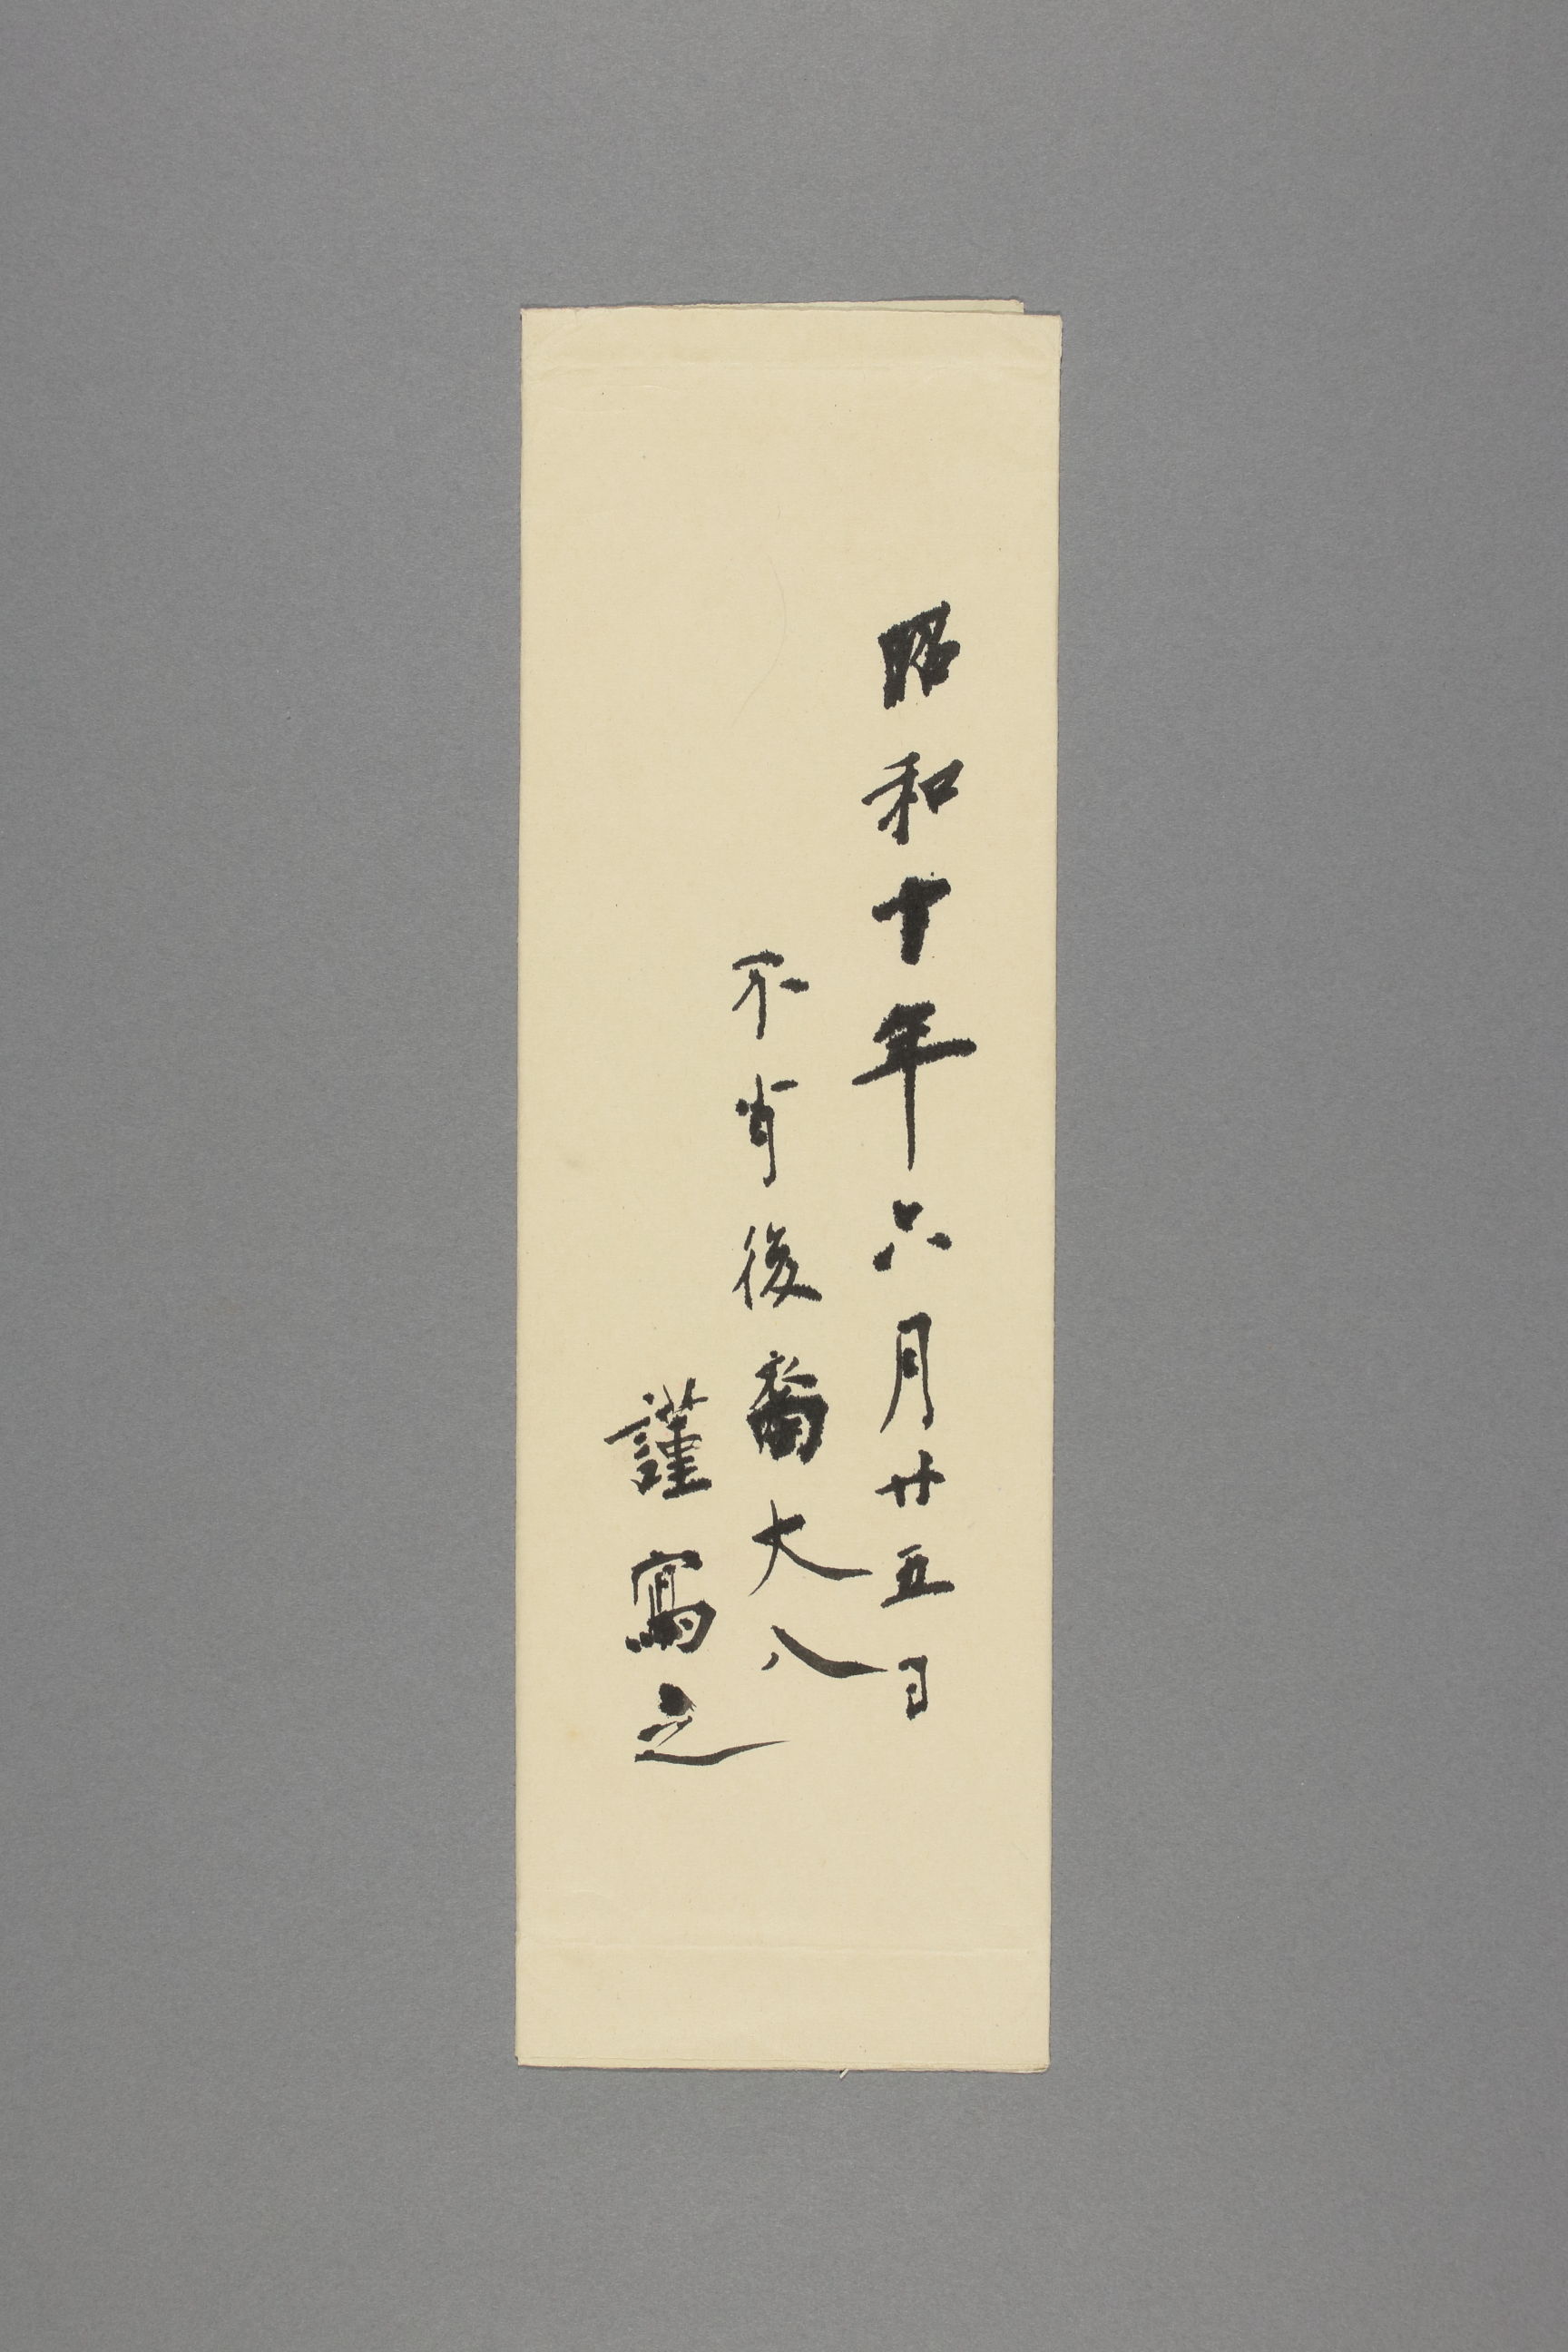 昭和十年六月廿五日
不肖後裔大八
謹寫之